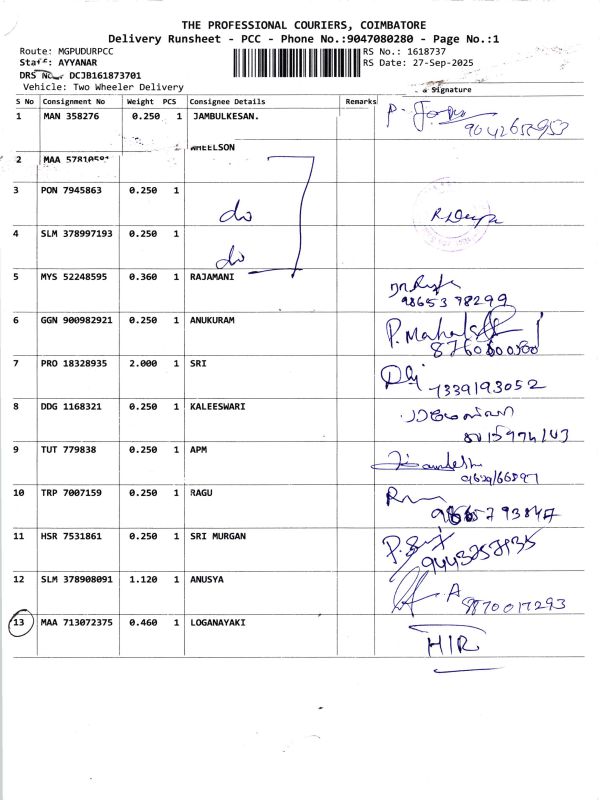 THE PROFESSIONAL COURIERS, COIMBATORE
Delivery Runsheet - PCC - Phone No.:9047080280 - Page No.:1
Route: MGPUDURPCC RS No.: 1618737
AYYANAR RS Date: 27-Sep-2025
DRS DCJB161873701
Vehicle: Two Wheeler Delivery & Signature
S No Consignment No Weight PCS Consignee Details Remarks
1 MAN 358276 0.250 1 JAMBULKESAN.
WHEELSON
2 MAA
3 PON 7945863 0.250 1
do
4 SLM 378997193 0.250 1
do
5 MYS 52248595 0.360 1 RAJAMANI
98653 78299
6 GGN 900982921 0.250 1 ANUKURAM P. Mahal
7 PRO 18328935 2.000 1 SRI
7339193052
8 DDG 1168321 0.250 1 KALEESWARI
9 TUT 779838 0.250 1 APM
10 TRP 7007159 0.250 1 RAGU
11 HSR 7531861 0.250 1 SRI MURGAN
12 SLM 378908091 1.120 1 ANUSYA A
13 MAA 713072375 0.460 1 LOGANAYAKI
HIR